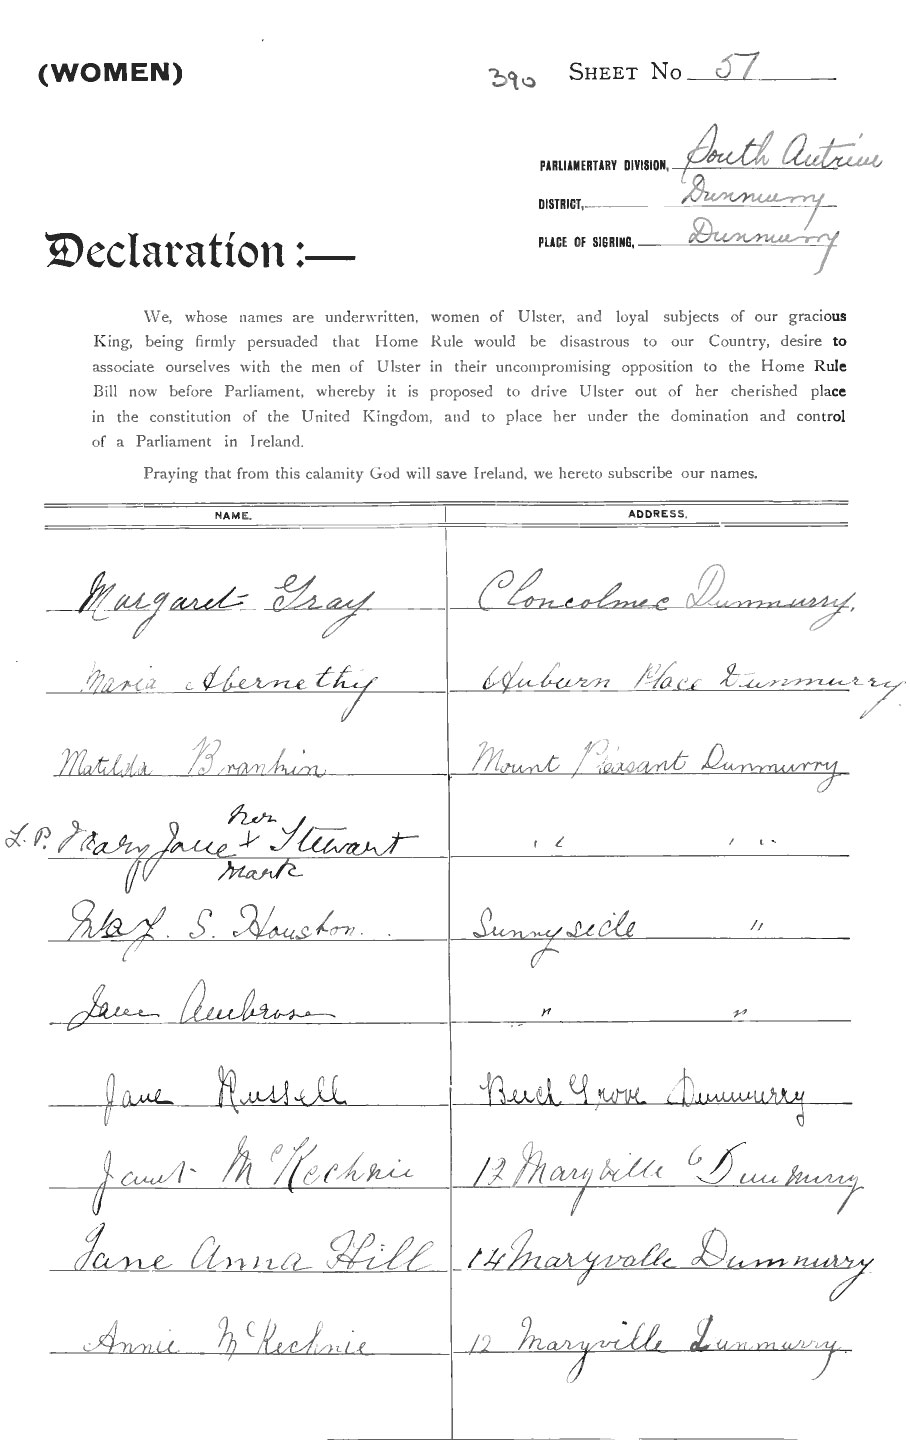 (WOMEN)
390 SHEET No 57
PARLIAMENTARY DIVISION, South Antrim
DISTRICT, Dunmurry
PLACE OF SIGNING, Dunmurry
Declaration :—
We, whose names are underwritten, women of Ulster, and loyal subjects of our gracious
King, being firmly persuaded that Home Rule would be disastrous to our Country, desire to
associate ourselves with the men of Ulster in their uncompromising opposition to the Home Rule
Bill now before Parliament, whereby it is proposed to drive Ulster out of her cherished place
in the constitution of the United Kingdom, and to place her under the domination and control
of a Parliament in Ireland.
Praying that from this calamity God will save Ireland, we hereto subscribe our names.
NAME. ADDRESS.
Margaret Gray Cloncolmec Dunmurry.
Maria Abernethy 6 Auburn Place Dunmurry
Matilda Brankin Mount Pleasant Dunmurry
her
Mary Jane x Stewart " "
mark
S. Houston. Sunnyside "
Jane Ambrose " "
Jane Russell Beech Grove Dunmurry
Janet McKechnie 12 Maryville Dunmurry
Jane Anna Hill 14 Maryvalle Dunmurry
Annie McKechnie 12 Maryville Dunmurry